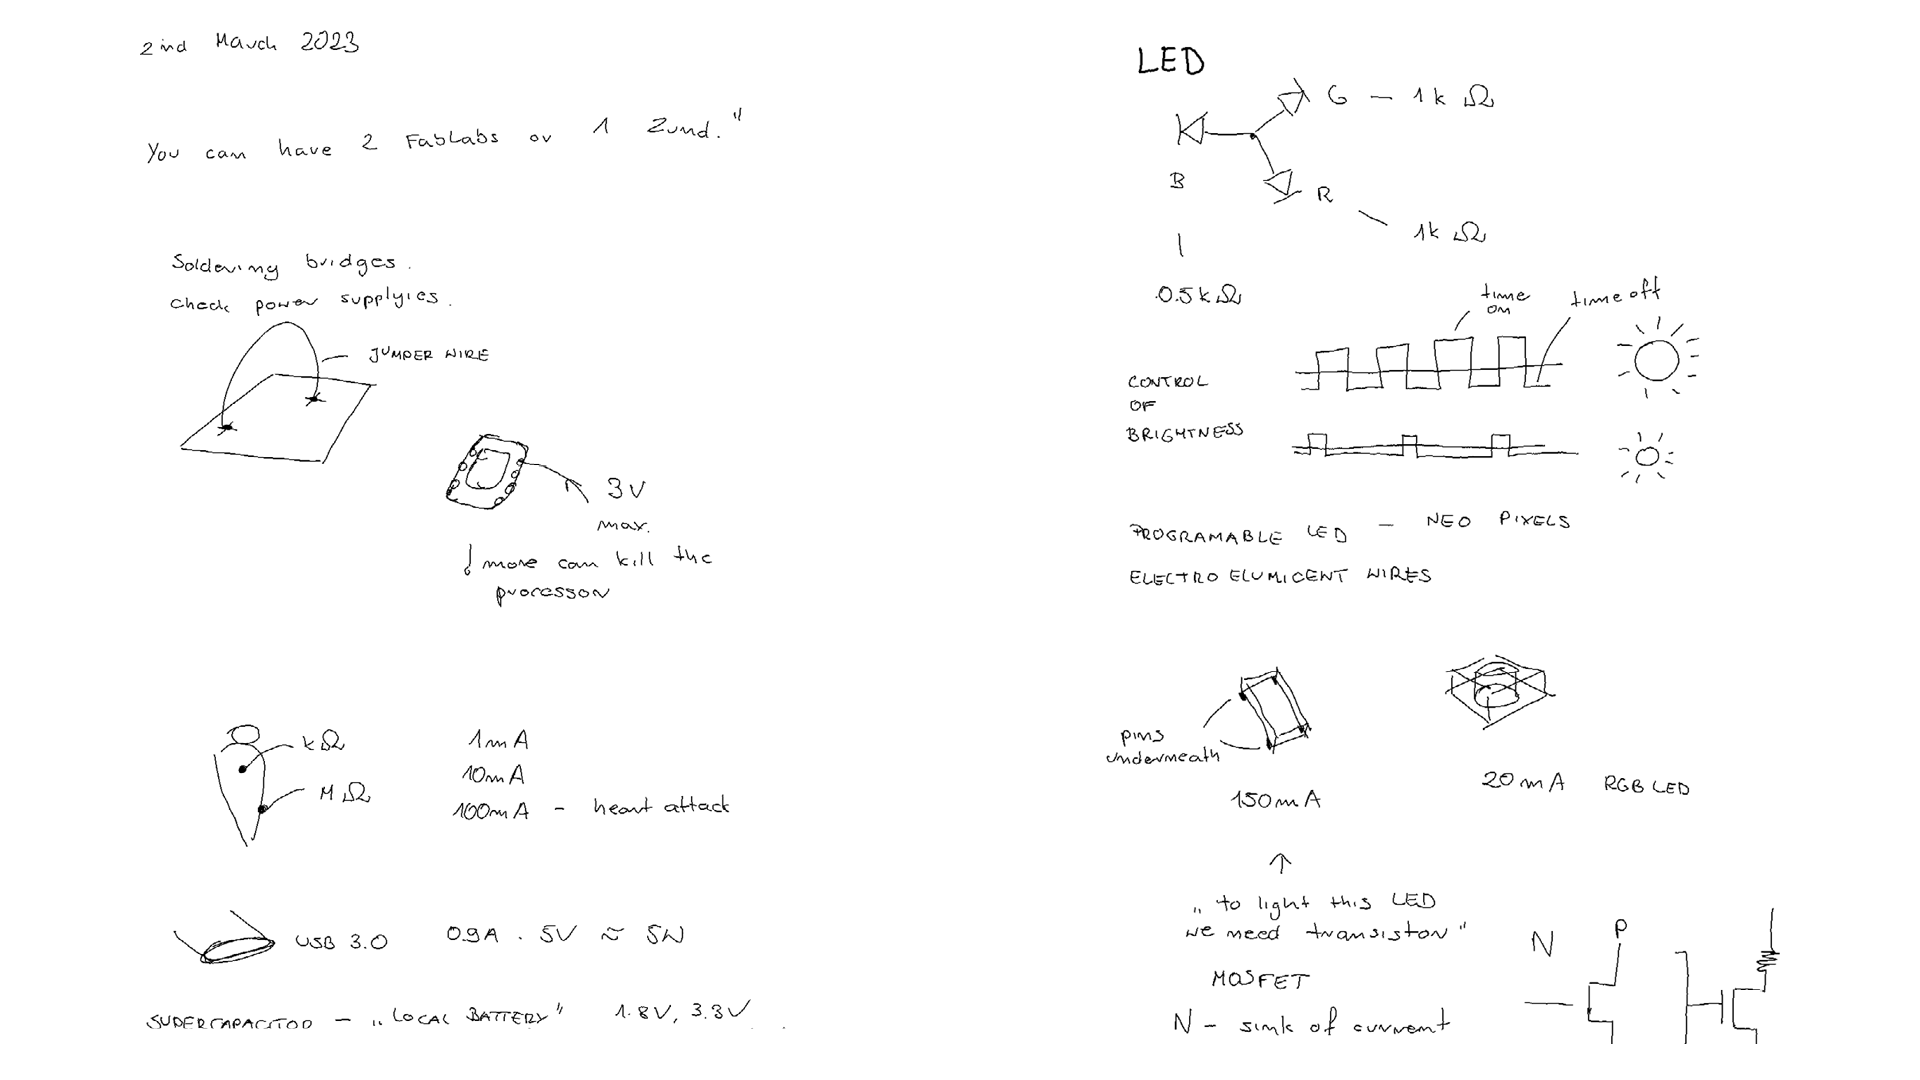 2nd March 2023
You can have 2 FabLabs or 1 Zund."
Soldering bridges.
Check power supplyies.
JUMPER WIRE
3V
max.
! more can kill the
processor
kΩ
MΩ
1mA
10mA
100mA - heart attack
USB 3.0 0.9A . 5V ≈ 5W
SUPERCAPACITOR - „LOCAL BATTERY" 1.8V, 3.3V
LED
G - 1k Ω
B
R
1k Ω
0.5kΩ
time
on
time off
CONTROL
OF
BRIGHTNESS
PROGRAMABLE LED - NEO PIXELS
ELECTRO ELUMICENT WIRES
pins
underneath
150mA
20mA RGB LED
„to light this LED
we need transistor"
MOSFET
N - sink of current
N
P